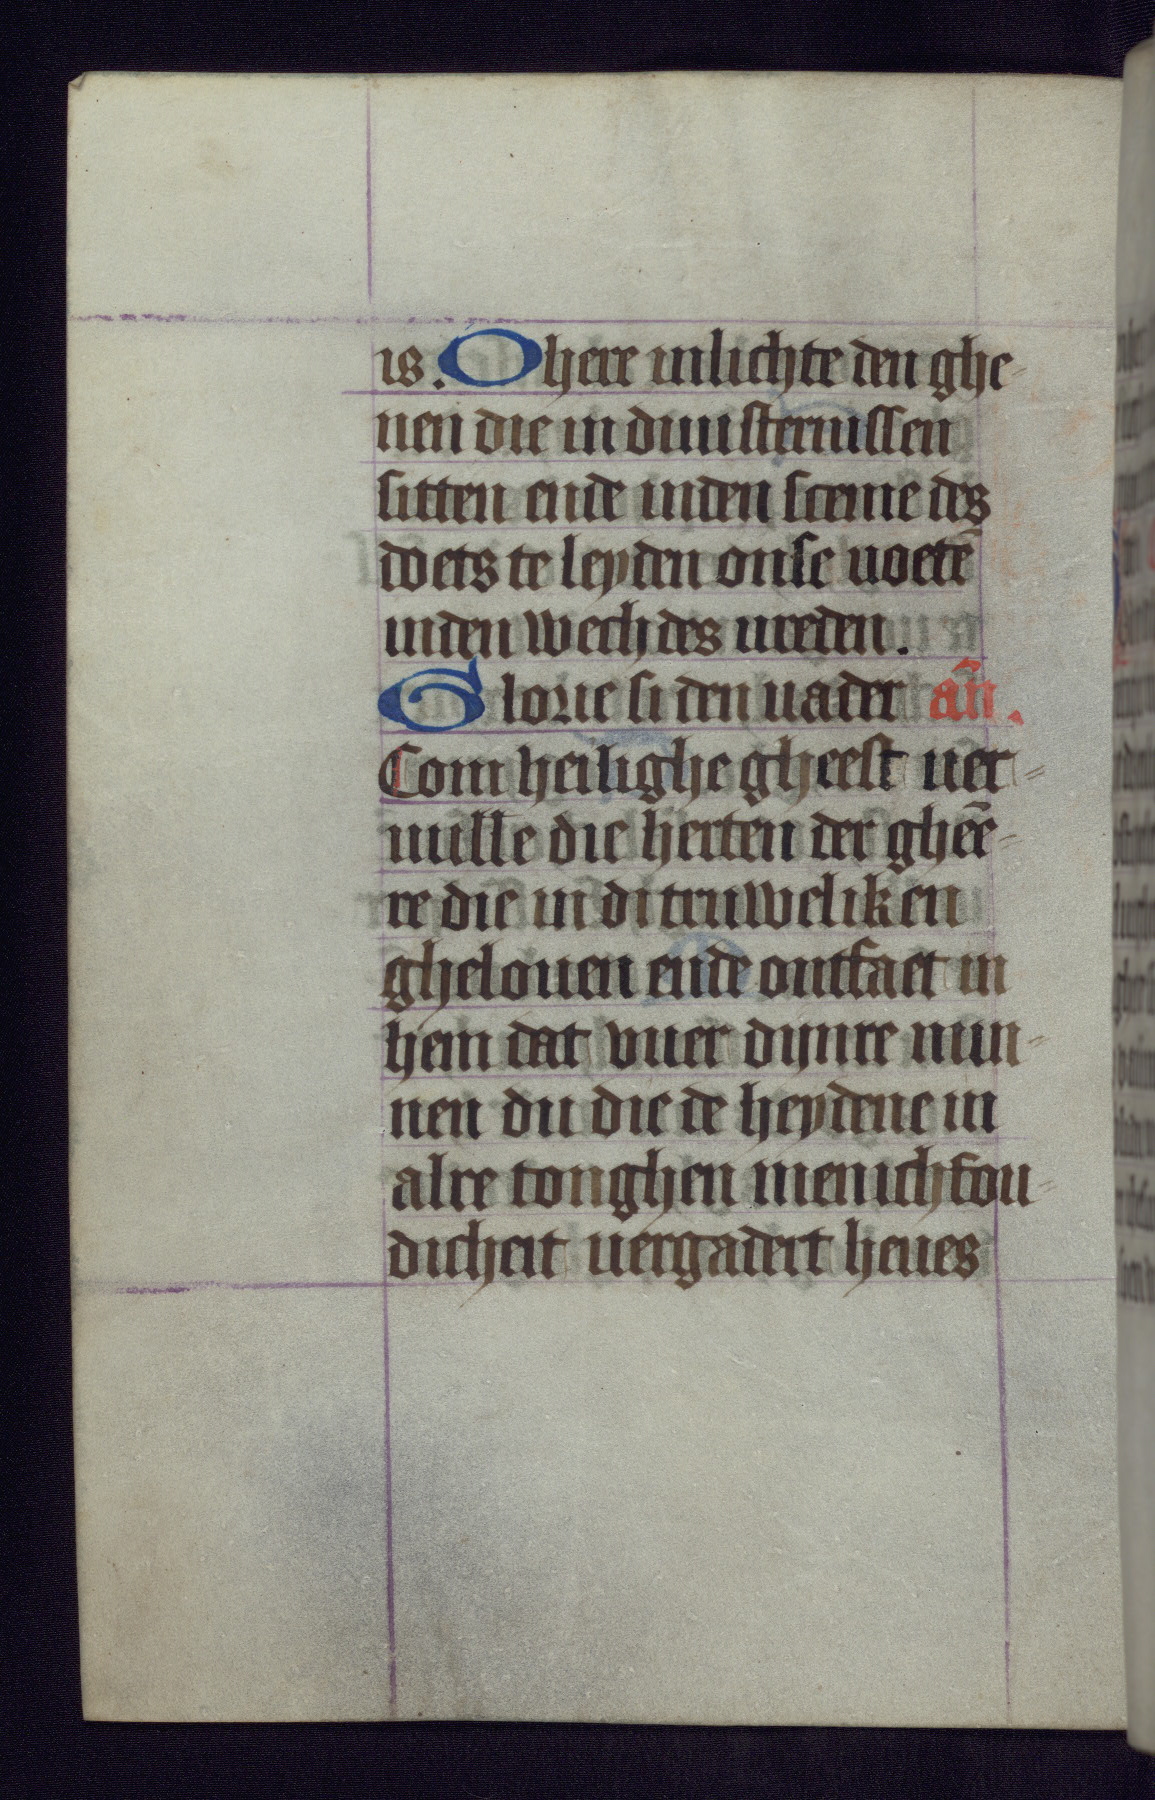 is. O here inlichte den ghe-
nen die in duusternissen
sitten ende inden sceme des
doets te leyden onse uoetē
inden wech des ureden.
Glorie si den uader an̄.
Com heilighe gheest uer-
uulle die herten der ghēr-
re die in di truweliken
ghelouen ende ontfaet in
hem dat vuer dijnre min-
nen du die de heydene in
alre tonghen menichfou-
dicheit uergadert heues